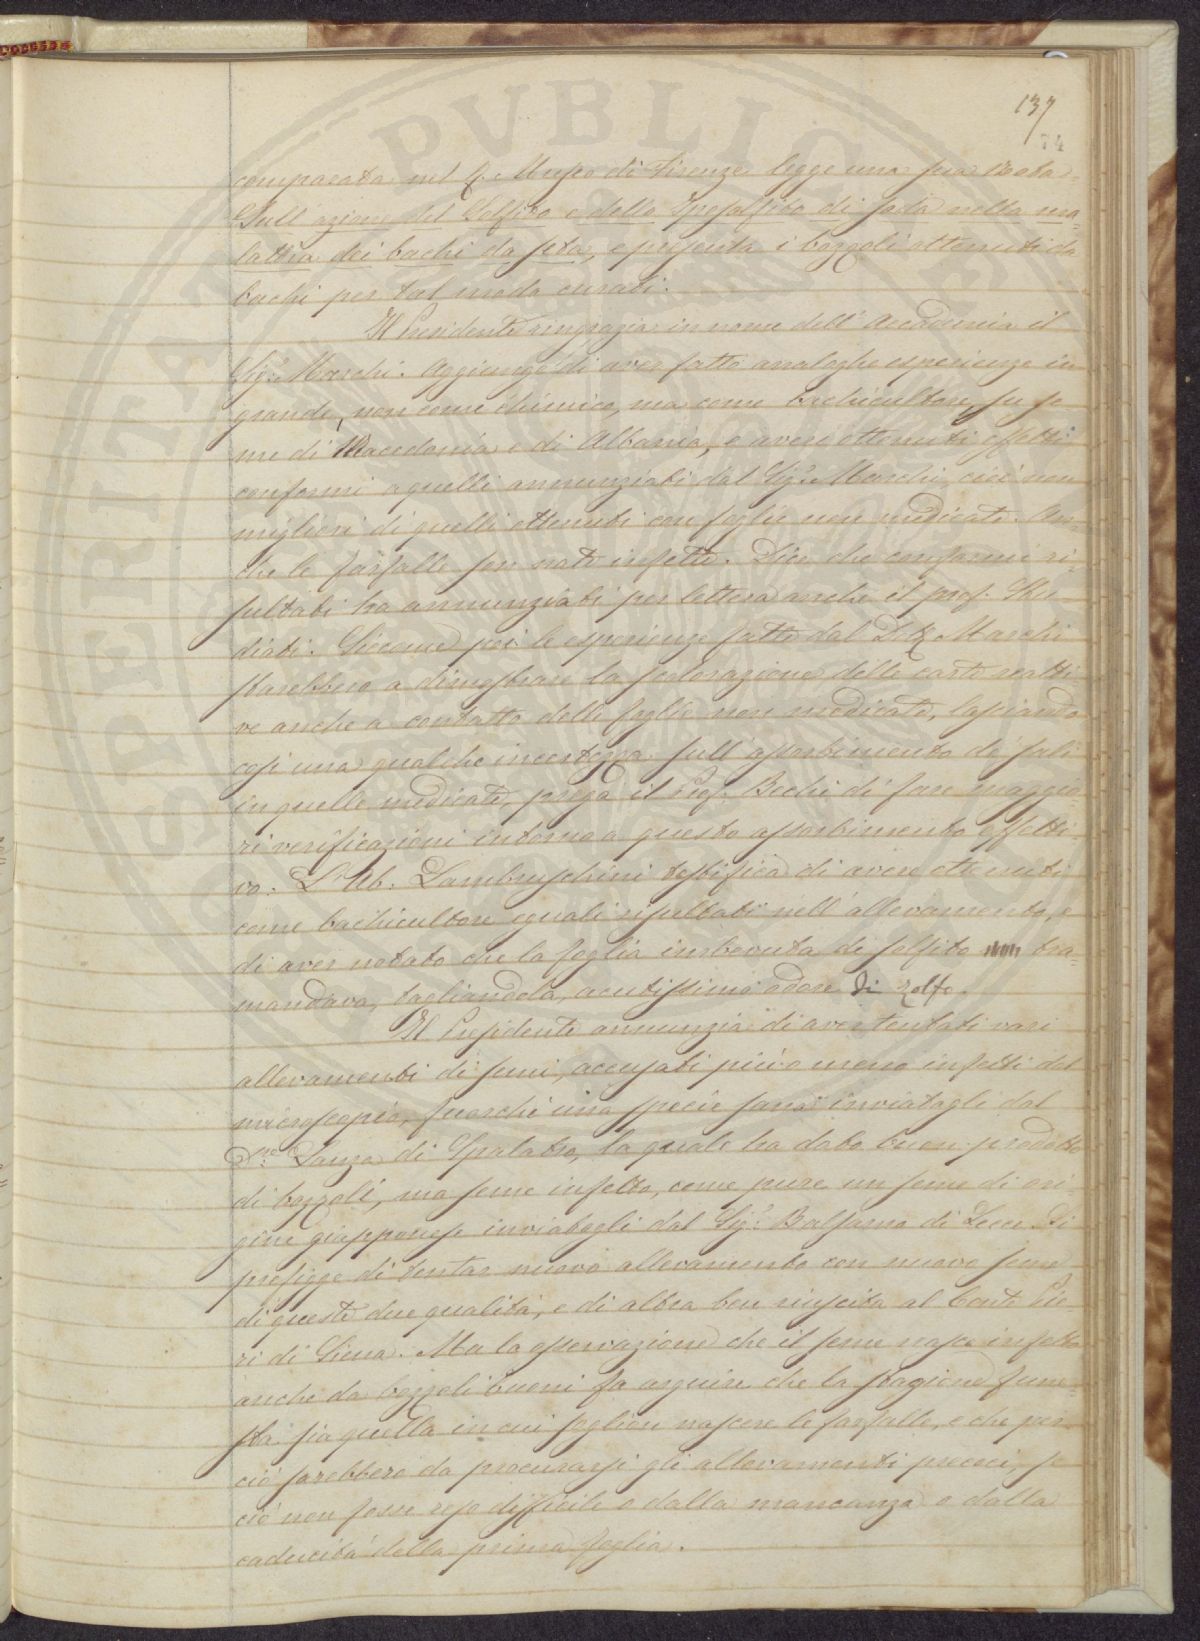 137
74
comparata nel R. Museo di Firenze legge una sua Nota
Sull'azione del Solfito e dello Iposolfito di soda nella ma-
lattia dei bachi da seta, e presenta i bozzoli ottenuti da
bachi per tal modo curati.
Il Presidente ringrazia in nome dell'Accademia il
Sig.r Marchi. Aggiunge di aver fatto analoghe esperienze in
grande, non come chimico, ma come bachicultore, su se-
me di Macedonia e di Albania, e avere ottenuti effetti
conformi a quelli annunziati dal Sig.r Marchi, cioè non
migliori di quelli ottenuti con foglie non medicate. An-
che le farfalle son nate infette. Dice che conformi ri-
sultati ha annunziati per lettera anche il prof. Stu-
diati. Siccome poi le esperienze fatte dal Dott. Marchi
starebbero a dimostrare la scolorazione delle carte reatti-
ve anche a contatto delle foglie non medicate, lasciando
così una qualche incertezza sull'assorbimento de' sali
in quelle medicate, prega il Prof. Bechi di fare maggio-
ri verificazioni intorno a questo assorbimento effetti-
vo. L'Ab. Lambruschini testifica di avere ottenuti
come bachicultore eguali risultati nell'allevamento, e
di aver notato che la foglia imbevuta di solfito tra-
mandava, tagliandola, acutissimo odore di zolfo.
Il Presidente annunzia di aver tentati vari
allevamenti di semi, accusati più o meno infetti dal
microscopio, fuorchè una specie sana inviatagli dal
Lanza di Spalatro, la quale ha dato buon prodotto
di bozzoli, ma seme infetto, come pure un seme di ori-
gine giapponese inviatogli dal Sig.r Balsamo di Lecce. Si
prefigge di tentar nuovo allevamento con nuovo seme
di queste due qualità, e di altra ben riuscita al Conte Pie-
ri di Siena. Ma la osservazione che il seme nasce infetto
anche da bozzoli buoni fa arguire che la stagione fune-
sta sia quella in cui soglion nascere le farfalle, e che per-
ciò sarebbero da procurarsi gli allevamenti precoci, se
ciò non fosse reso difficile o dalla mancanza o dalla
caducità della prima foglia.